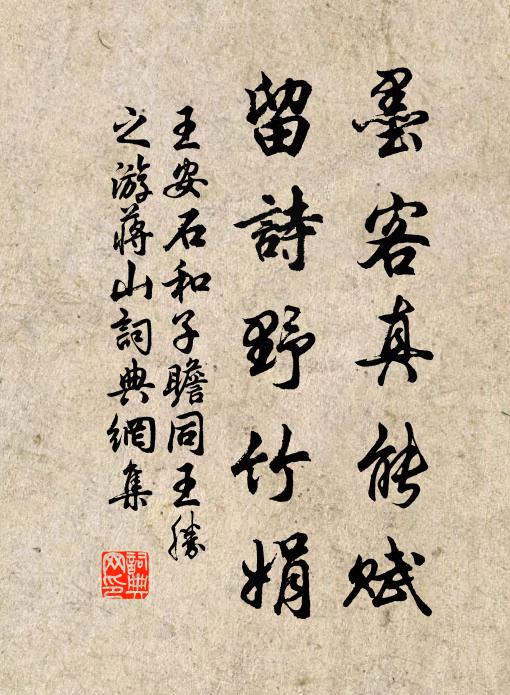 墨客真能賦
留詩野竹娟
王安石和子瞻同王勝
之游蔣山詞典網集
詞典
网印